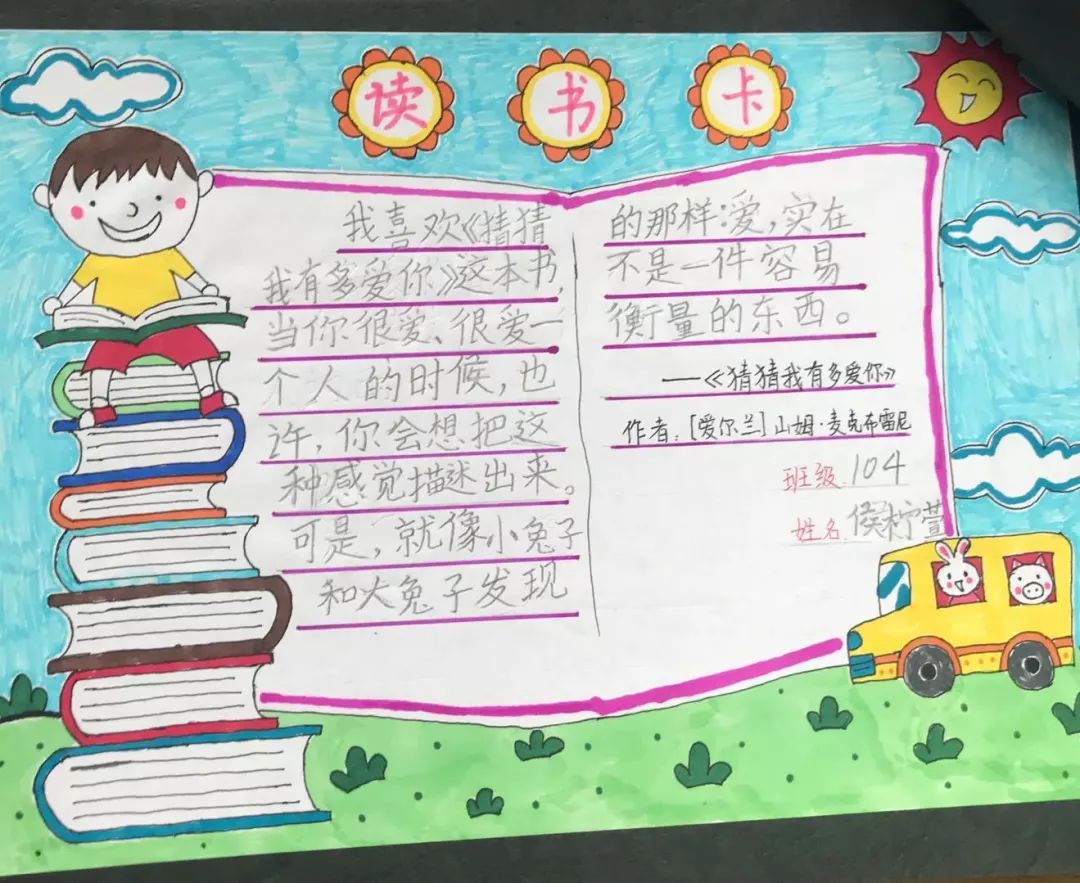 读书卡
我喜欢《猜猜
我有多爱你》这本书,
当你很爱、很爱一
个人的时候,也
许,你会想把这
种感觉描述出来。
可是,就像小兔子
和大兔子发现
的那样:爱,实在
不是一件容易
衡量的东西。
——《猜猜我有多爱你》
作者:[爱尔兰]山姆·麦克布雷尼
班级 104
姓名 侯柠萱